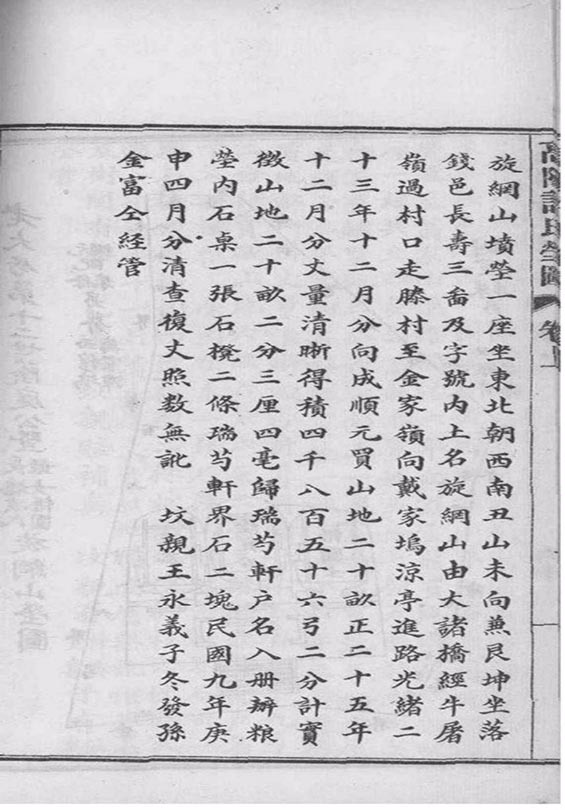 高陽許氏塋圖 卷上
旋網山墳塋一座坐東北朝西南丑山未向兼艮坤坐落
錢邑長壽三啚及字號內上名旋網山由大諸橋經牛屠
嶺過村口走滕村至金家嶺向戴家塢涼亭進路光緒二
十三年十二月分向成順元買山地二十畝正二十五年
十二月分丈量清晰得積四千八百五十六弓二分計實
徵山地二十畝二分三厘四毫歸瑞芍軒户名入册辦粮
塋内石桌一張石櫈二條瑞芍軒界石二塊民國九年庚
申四月分清查復丈照数無訛 坟親王永義子冬發孫
金富仝經管